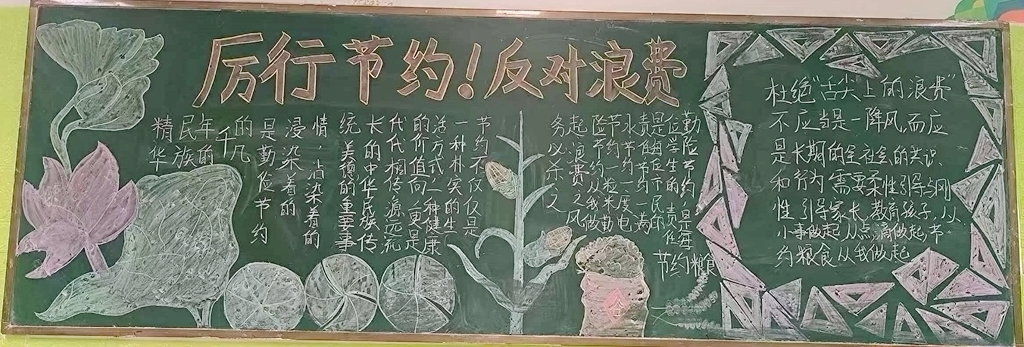 厉行节约！反对浪费
勤俭节约，是每
位学生的责任
水节约一度电
节约一粒米勤
俭节约从我做
起浪费之风
务必杀之
节约粮
节约不仅仅是
一种朴实的生
活方式一种健康
的价值向，更是
代代相传源远流
长的中华民族传
统美德的重要事
情，沾染着的
浸染着的
是勤俭节约
的几
千
年的
民族
精华
杜绝“舌尖”上的浪费”
不应当是一阵风，而应
是长期的全社会的共识
和行为需要柔性引导与刚
性引导家长教育孩子，从
小事做起从点滴做起节
约粮食从我做起